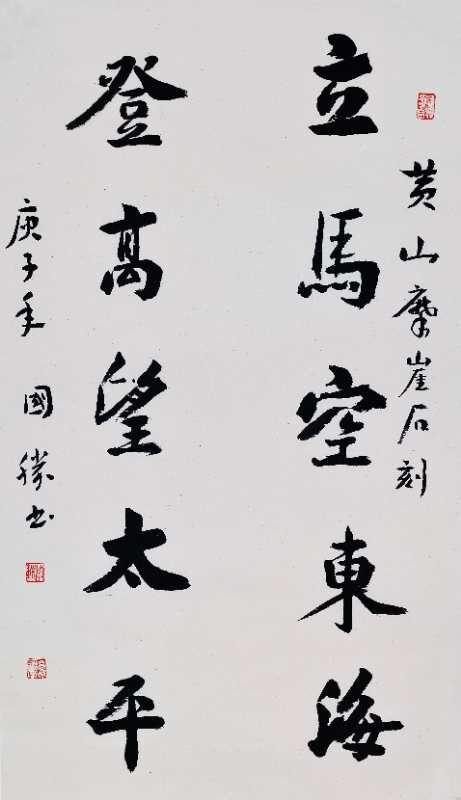 黄山摩崖石刻
立馬空東海
登高望太平
庚子年 國勝书